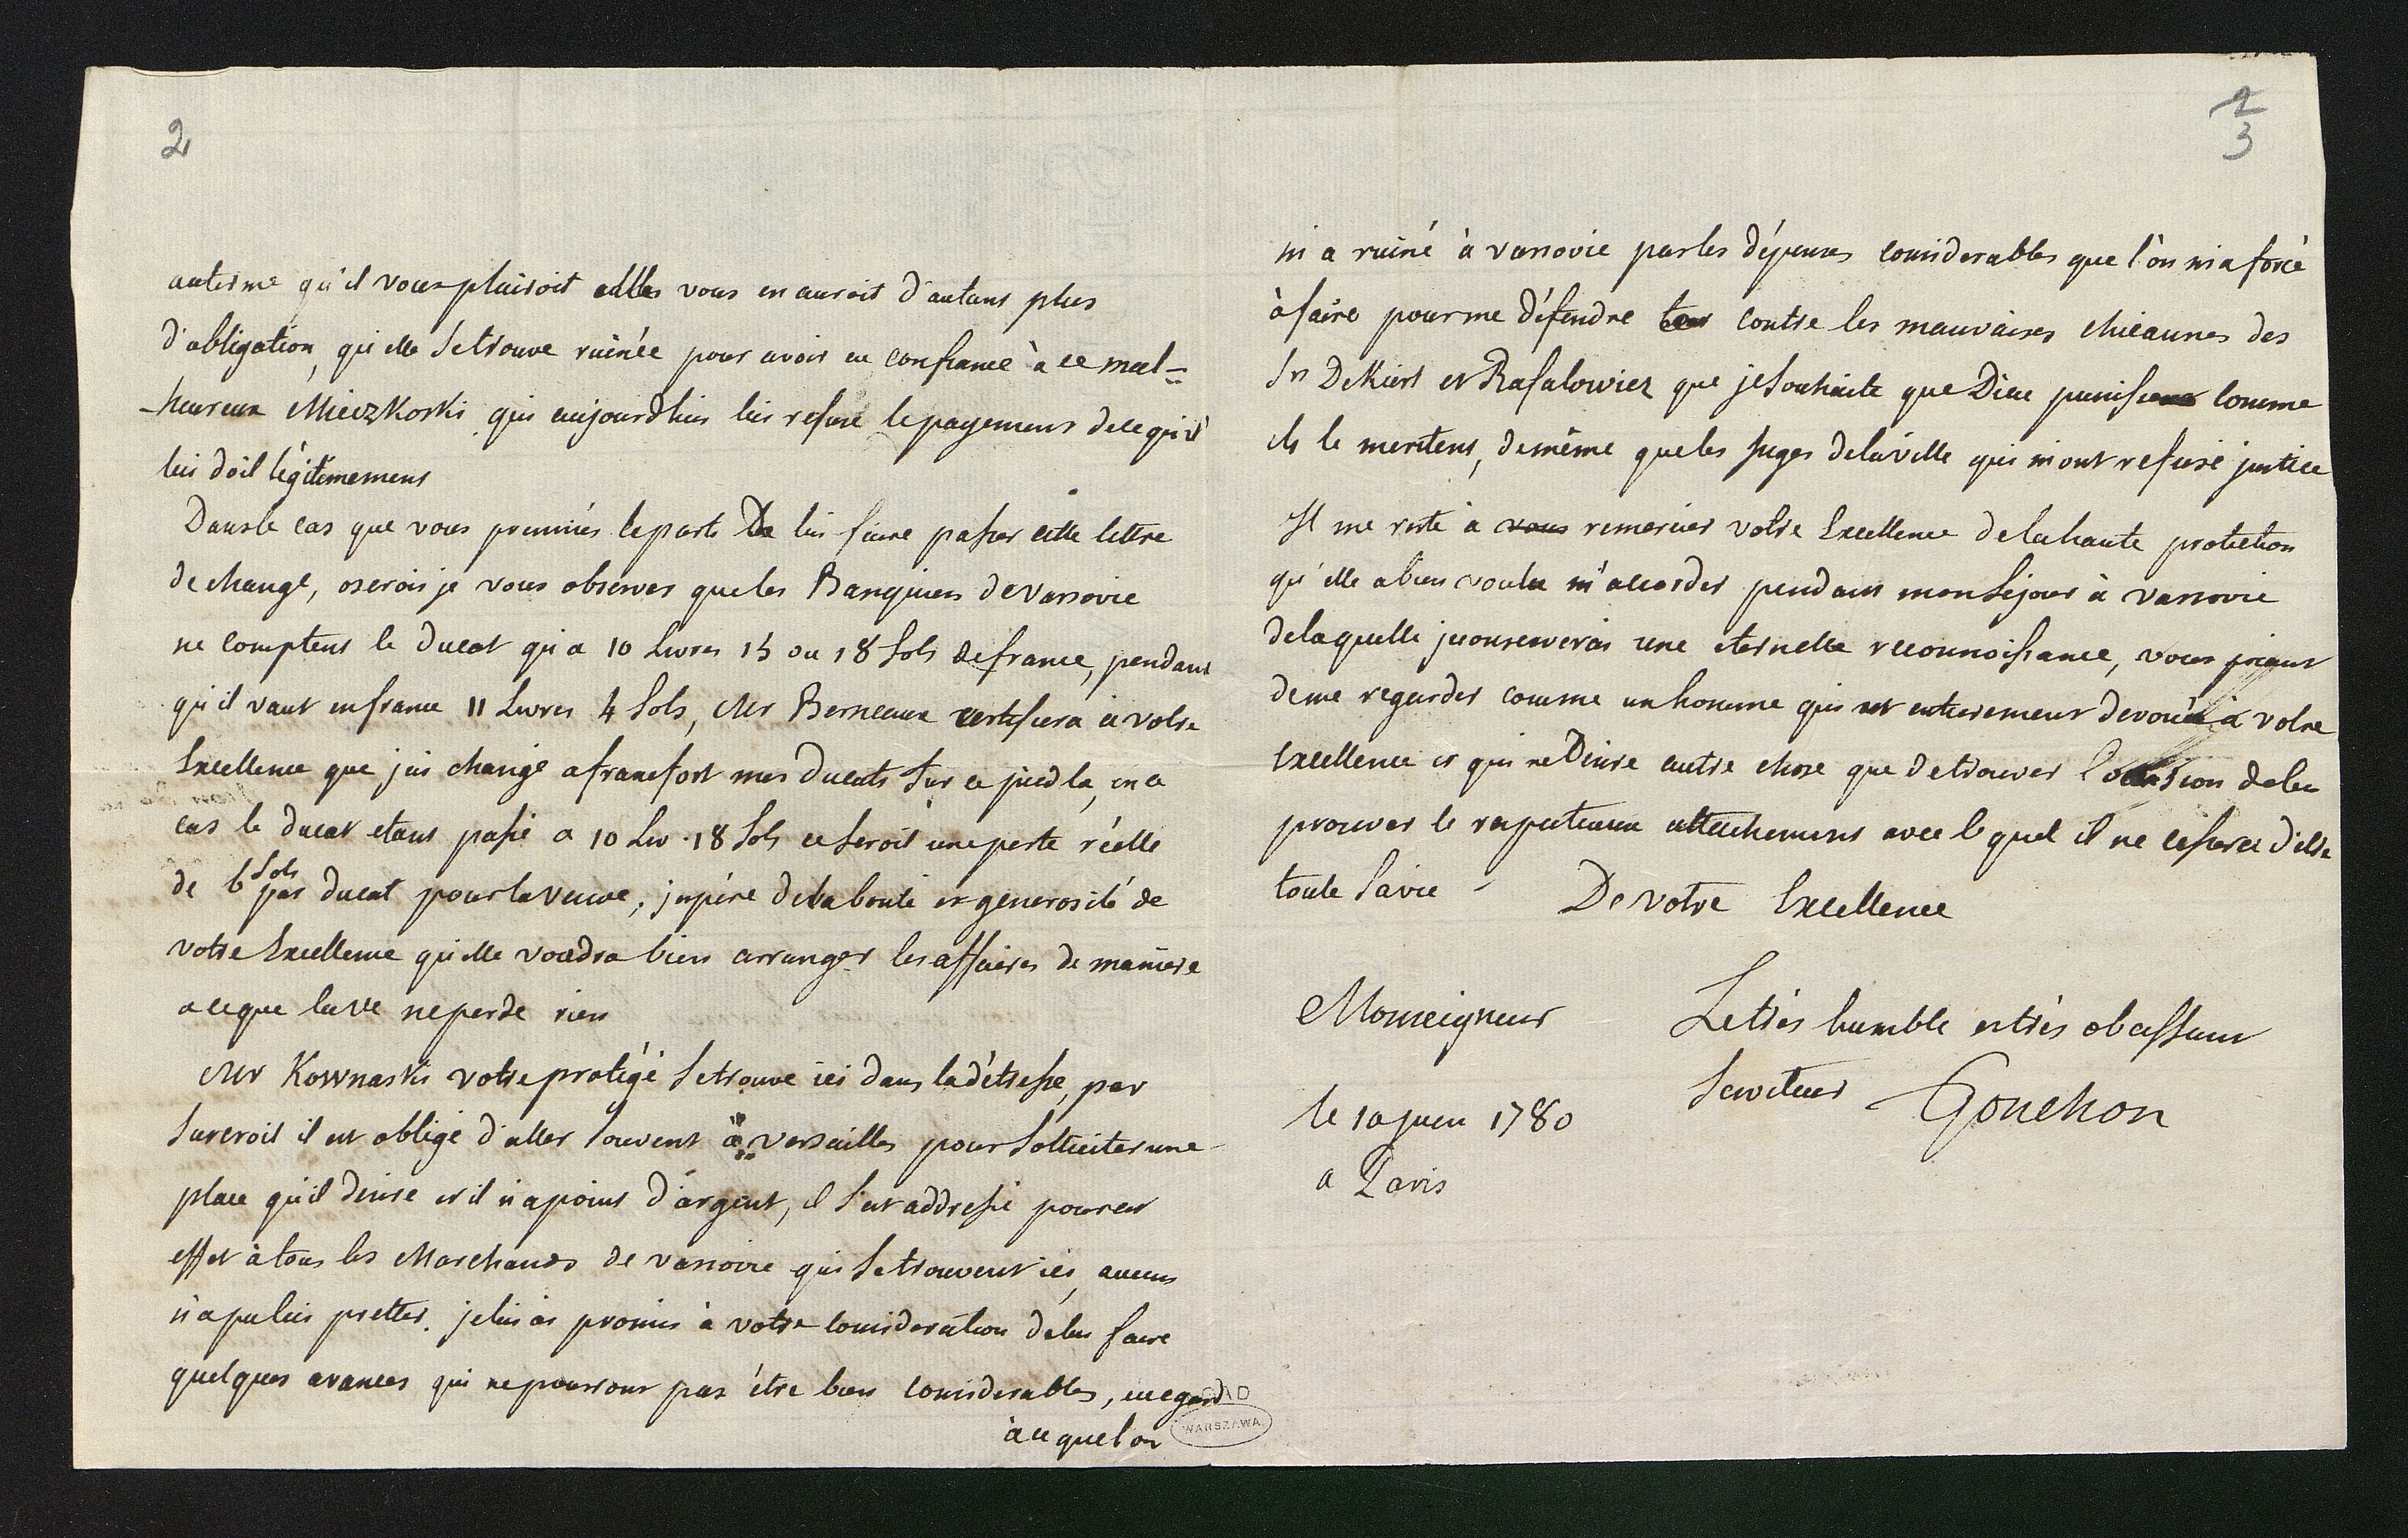 2
auterme qu'il vous plairoit elle vous en auroit d'autant plus
d'obligation, qu'elle se trouve ruinée pour avoir eu confiance à ce mal=
-heureux Mieczkoski qui aujourdhui lui refuse le payement de ce qu'il
lui doit légitimement
Dans le cas que vous preniés le parti De lui faire passer cette lettre
de change, oserois je vous observer que les Banquiers de varsovie
ne comptent le Ducat qu'a 10 Livres 15 ou 18 sols de france, pendant
qu'il vaut en france 11 Livres 4 sols, Mr Berneaux certifiera à votre
Excellence que j'ai changé a francfort mes Ducats sur ce pied la, en ce
cas le ducat etant passé a 10 Liv. 18 sols ce seroit une perte réelle
de 6 sols par ducat pour la veuve; j'espére de la bonté et generosité de
votre Excellence qu'elle voudra bien arranger les affaires de maniere
a ce que la Ve ne perde rien
Mr Kownaski votre protégé se trouve ici dans la détresse, par
surcroit il est obligé d'aller souvent à versailles pour solliciter une
place qu'il desire et il n'a point d'argent, il s'est addressé pour cet
effet à tous les Marchands de varsovie qui se trouvent ici, aucun
n'a pu lui pretter. je lui ai promis à votre consideration de lui faire
quelques avances qui ne pourront pas être bien considerables, eu egard
à ce que l'on
2
3
m'a ruiné à varsovie par les dépenses considerables que l'on m'a forcé
à faire pour me défendre contre les mauvaises chicaunes des
Srs DeKiert et Rafalowiez que je souhaite que Dieu punisse comme
ils le meritent, de même que les Juges de la ville qui m'ont refusé justice
Il me reste à vous remercier votre Excellence de la haute protection
qu'elle a bien voulu m'accorder pendant mon sejour à varsovie
de laquelle je conserverai une eternelle reconnoissance, vous priant
de me regarder comme un homme qui est entierement devoué à votre
Excellence et qui ne Desire autre chose que de trouver l'occasion de lui
prouver le respectueux attachement avec le quel il ne cessera d'etre
toute sa vie - De votre Excellence
Monseigneur
Le très humble et très obeissant
serviteur Gonchon
le 10 juin 1780
a Paris
AD
WARSZAWA